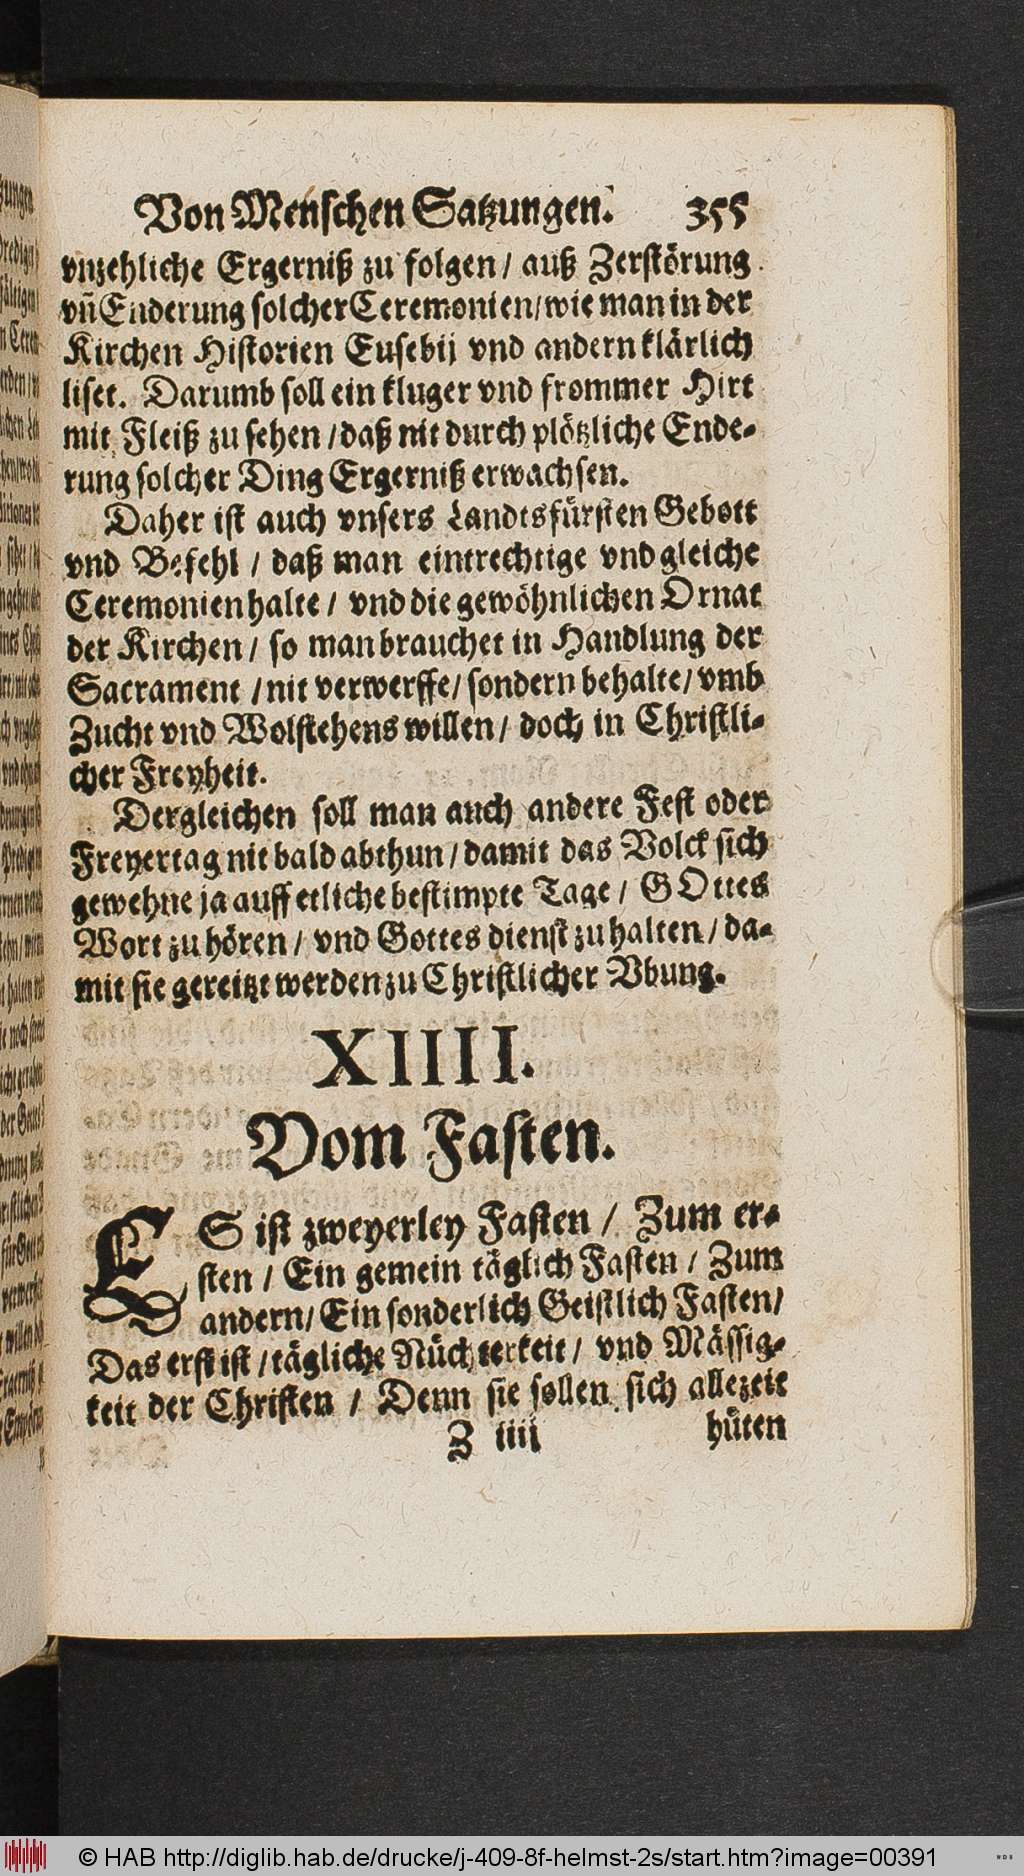 Von Menschen Satzungen. 355
vnzehliche Ergerniß zu folgen / auß Zerstörung
vñ Enderung solcher Ceremonien / wie man in der
Kirchen Historien Eusebij vnd andern klärlich
liset. Darumb soll ein kluger vnd frommer Hirt
mit Fleiß zu sehen / daß nit durch plötzliche Ende-
rung solcher Ding Ergerniß erwachsen.
Daher ist auch vnsers Landtsfürsten Gebott
vnd Befehl / daß man eintrechtige vnd gleiche
Ceremonien halte / vnd die gewöhnlichen Ornat
der Kirchen / so man brauchet in Handlung der
Sacrament / nit verwerffe / sondern behalte / vmb
Zucht vnd Wolstehens willen / doch in Christli-
cher Freyheit.
Dergleichen soll man auch andere Fest oder
Freyertag nit bald abthun / damit das Volck sich
gewehne ja auff etliche bestimpte Tage / GOttes
Wort zu hören / vnd Gottes dienst zu halten / da-
mit sie gereitzt werden zu Christlicher Vbung.
XIIII.
Vom Fasten.
ES ist zweyerley Fasten / Zum er-
sten / Ein gemein täglich Fasten / Zum
andern / Ein sonderlich Geistlich Fasten /
Das erst ist / tägliche Nüchterkeit / vnd Mässig-
keit der Christen / Denn sie sollen sich allezeit
Z iiii hüten
© HAB http://diglib.hab.de/drucke/j-409-8f-helmst-2s/start.htm?image=00391